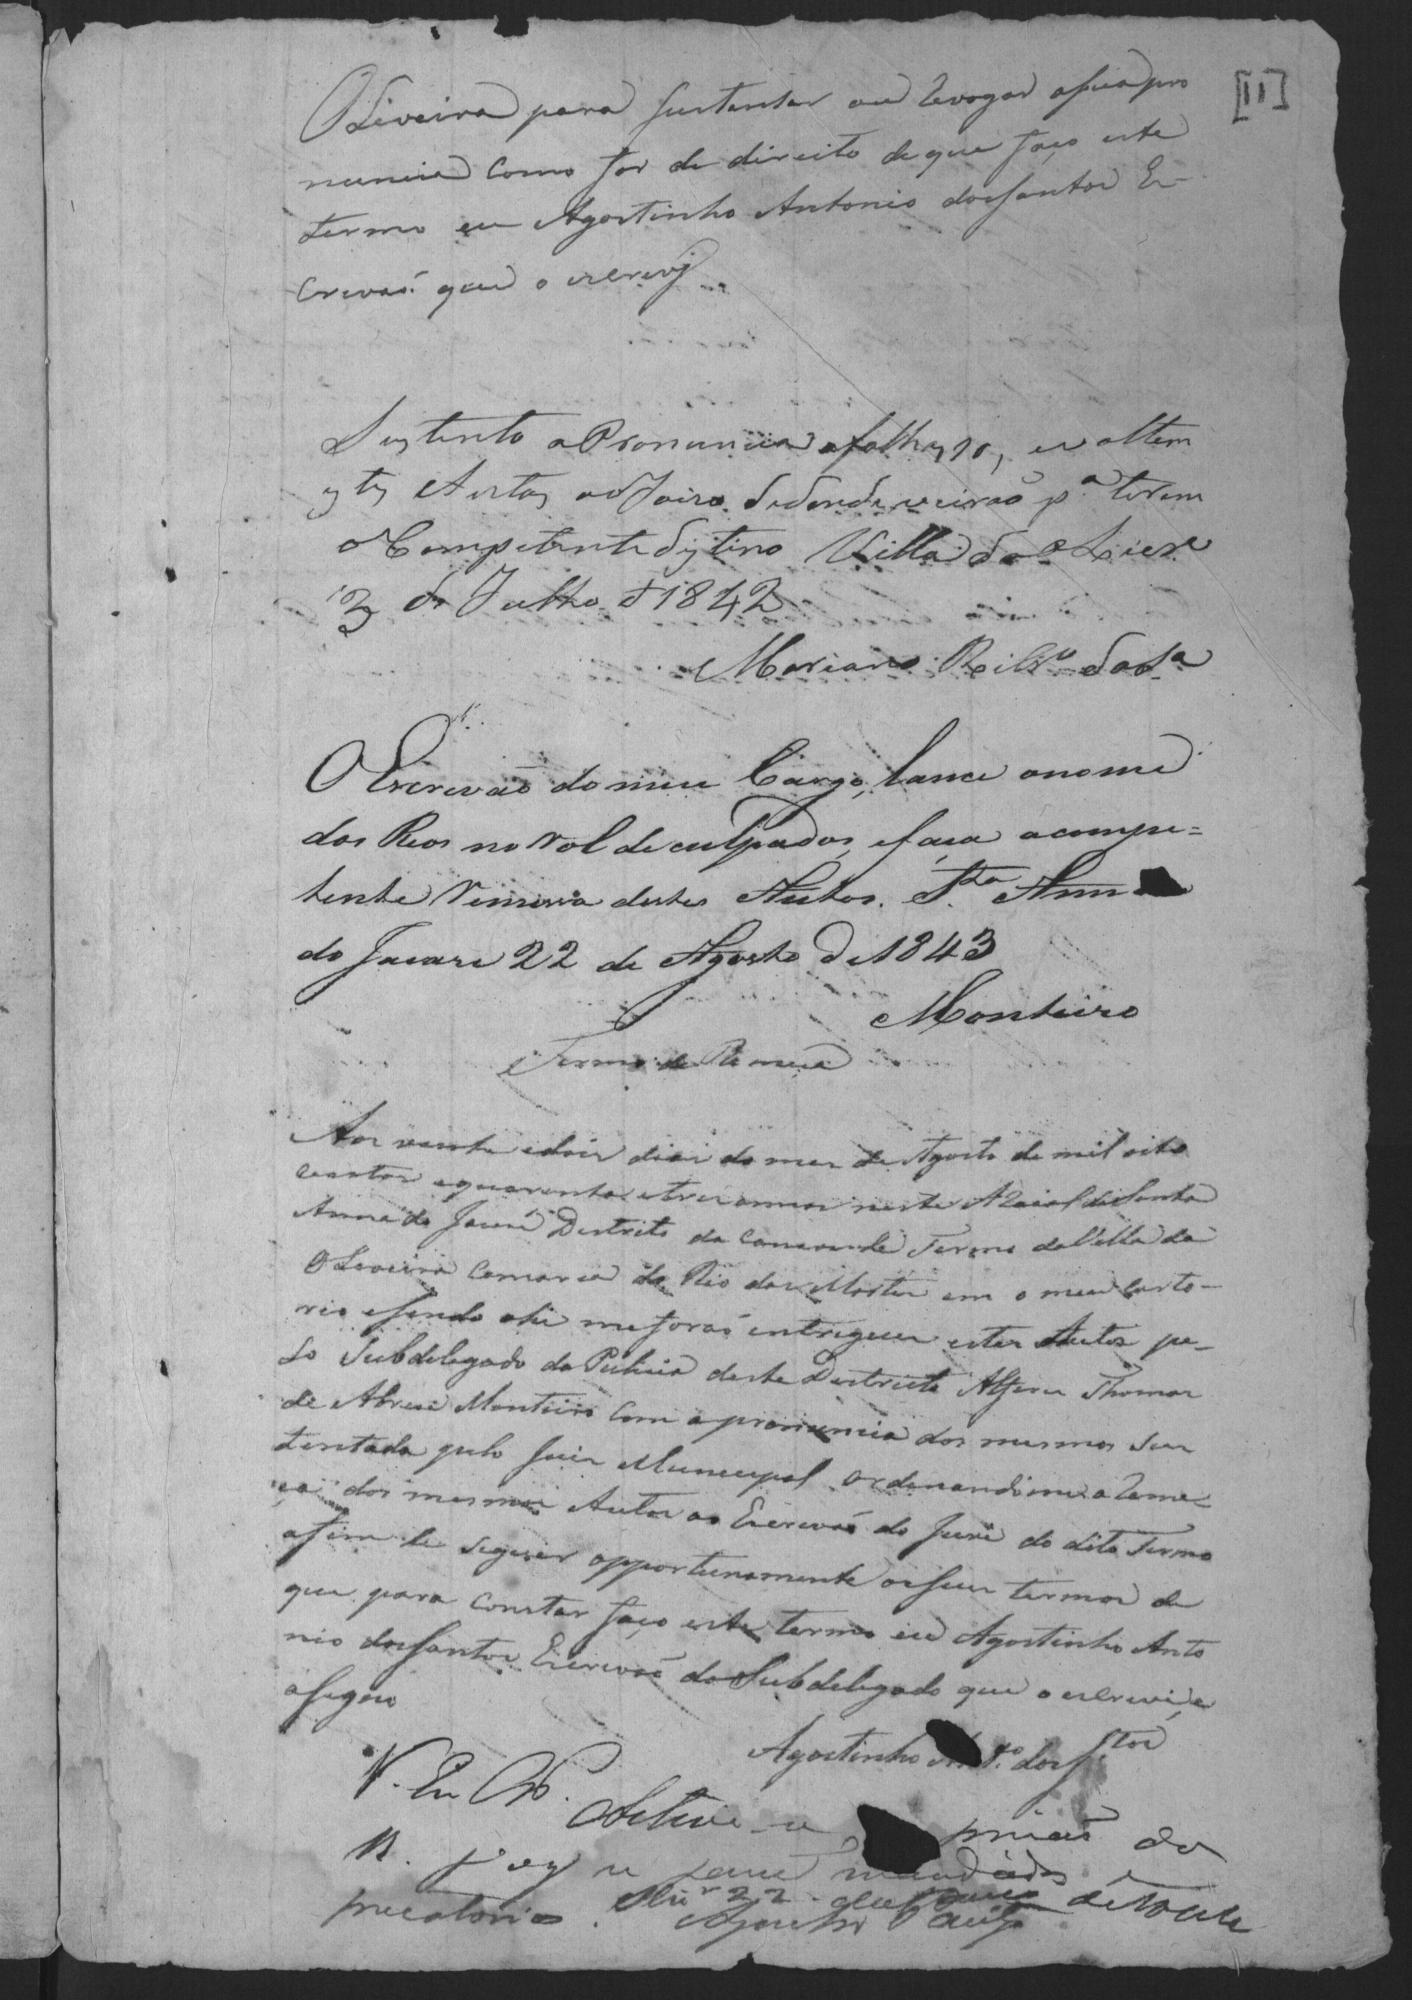 [11]
Oliveira para sustentar ou revogar a sua pro
nuncia como for de direito de que faço este
termo eu Agostinho Antonio dos Santos Es-
crivaõ que o escrevj
Sustento a Pronuncia a folhas 10, e voltem
estes Autos ao Juizo dedonde vieraõ p.ª terem
o Competente destino Villa de Oliera
3 de Julho d 1842
Mariano Ribr.º da S.ª
O Escrivaõ do meu Cargo, lance o nome
dos Reos no rol de culpados, e faça a compe=
tente remessa destes Autos. S.ta Anna
do Jacare 22 de Agosto de 1843
Monteiro
Termo de Remeça
Aos vinte e dois dias do mes de Agosto de mil oito
centos e quarenta e tres annos neste Arraial de Santa
Anna do Jacaré Destrito da Termo da Villa de
Oliveira Comarca do Rio das Mortes em o meu Carto-
rio e sendo ahi me foraõ entregues estes Autos pe-
lo Subdelegado da Policia deste Destricto Alferes Thomas
de Abreu Monteiro com a pronuncia dos mesmos sus
tentada pelo Juiz Municipal ordenandome a reme-
ça dos mesmos Autos ao Escrivaõ do Jurí do dito Termo
afim de seguir opportunamente os seus termos de
que para constar faço este termo eu Agostinho Anto
nio dos Santos Escrivaõ do Subdelegado que o escrevi, e
asigno
Agostinho Ant.º dos S.tos
V. Em C.
a priçaõ do
R.
precatorio. 22 de Agosto